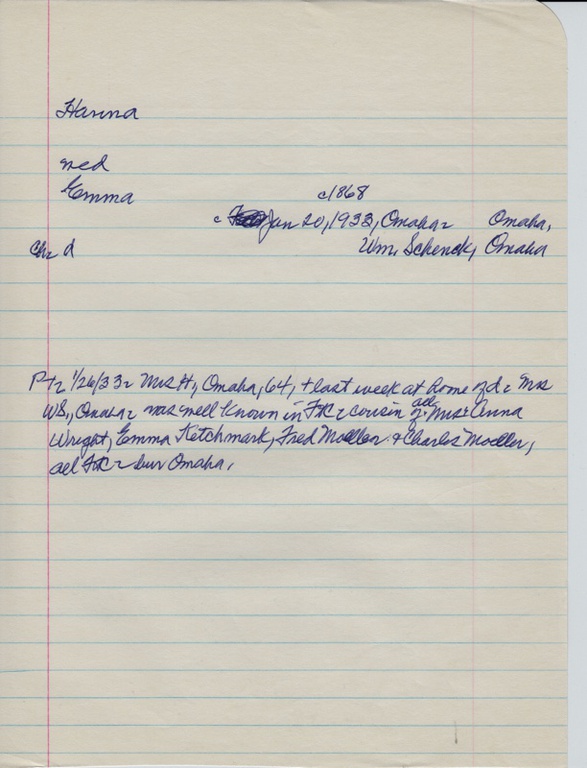 Hanna
med
Emma c1868
c Jan 20, 1933, Omaha Omaha,
Ch d Wm. Schenck, Omaha
1/26/33 Mrs H, Omaha, 64, + last week at home of d Mrs
WS, Omaha was well known in FKC cousin of Miss Anna
Wright, Emma Ketchmark, Fred Moeller + Charles Moeller,
all FKC bur Omaha.